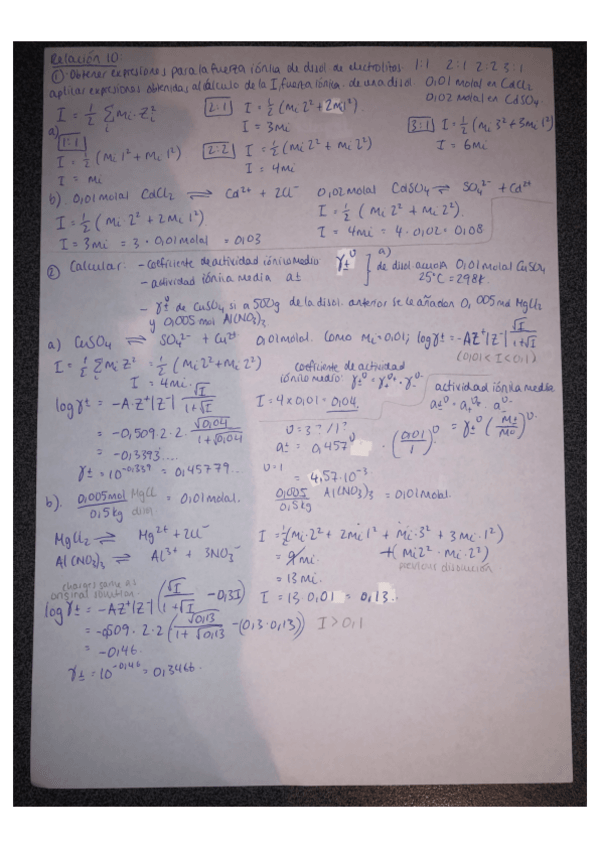 Relación 10:
① Obtener expresiones para la fuerza iónica de disol. de electrolitos 1:1 2:1 2:2 3:1
aplicar expresiones obtenidas al cálculo de la I, fuerza iónica. de una disol 0,01 molal en CdCl2
0,02 molal en CdSO4.
I = 1/2 Σi mi·zi²
a)
1:1
I = 1/2 (mi 1² + mi 1²)
I = mi
2:1 I = 1/2 (mi 2² + 2mi 1²)
I = 3mi
2:2 I = 1/2 (mi 2² + mi 2²)
I = 4mi
3:1 I = 1/2 (mi 3² + 3mi 1²)
I = 6mi
b) 0,01 molal CdCl2 ⇌ Cd²⁺ + 2Cl⁻ 0,02 molal CdSO4 ⇌ SO4²⁻ + Cd²⁺
I = 1/2 (mi 2² + 2mi 1²) I = 1/2 (mi 2² + mi 2²).
I = 3mi = 3·0,01 molal = 0,03 I = 4mi = 4·0,02 = 0,08
② Calcular: - coeficiente de actividad iónico medio γ±^υ
- actividad iónica media a±
a) de disol. acuosa 0,01 molal CuSO4
25°C = 298K.
- γ±^υ de CuSO4 si a 500g de la disol. anterior se le añaden 0,005 mol MgCl2
y 0,005 mol Al(NO3)3.
a) CuSO4 ⇌ SO4²⁻ + Cu²⁺ 0,01 molal. Como mi = 0,01; log γ± = -AZ⁺|Z⁻| √I/(1+√I)
(0,01 < I < 0,1)
I = 1/2 Σi mi Z² = 1/2 (mi 2² + mi 2²)
I = 4mi.
log γ± = -A·Z⁺|Z⁻| √I/(1+√I) I = 4×0,01 = 0,04.
= -0,509·2·2 √0,04/(1+√0,04)
= -0,3393....
γ± = 10^-0,339 = 0,45779...
coeficiente de actividad
iónico medio: γ±^υ = γ+^υ+ · γ-^υ-
actividad iónica media
a±^υ = a+^υ+ · a-^υ-
= γ±^υ (m±/m⁰)^υ
υ = 3?/1?
a± = 0,457^υ · (0,01/1)^υ
υ = 1
= 4,57·10⁻³
b). 0,005mol MgCl/0,5kg disn = 0,01 molal. 0,005/0,5 Al(NO3)3 = 0,01 molal
MgCl2 ⇌ Mg²⁺ + 2Cl⁻
Al(NO3)3 ⇌ Al³⁺ + 3NO3⁻
I = 1/2 (mi·2² + 2mi 1² + mi·3² + 3mi 1²)
= 9mi. + (mi 2² · mi 2²)
previous disolución
= 13mi.
I = 13·0,01 = 0,13.
charges same as
original solution
log γ± = -AZ⁺|Z⁻| (√I/(1+√I) - 0,3I)
= -0,509·2·2 (√0,13/(1+√0,13) - (0,3·0,13)) I > 0,1
= -0,46.
γ± = 10^-0,46 = 0,3466.